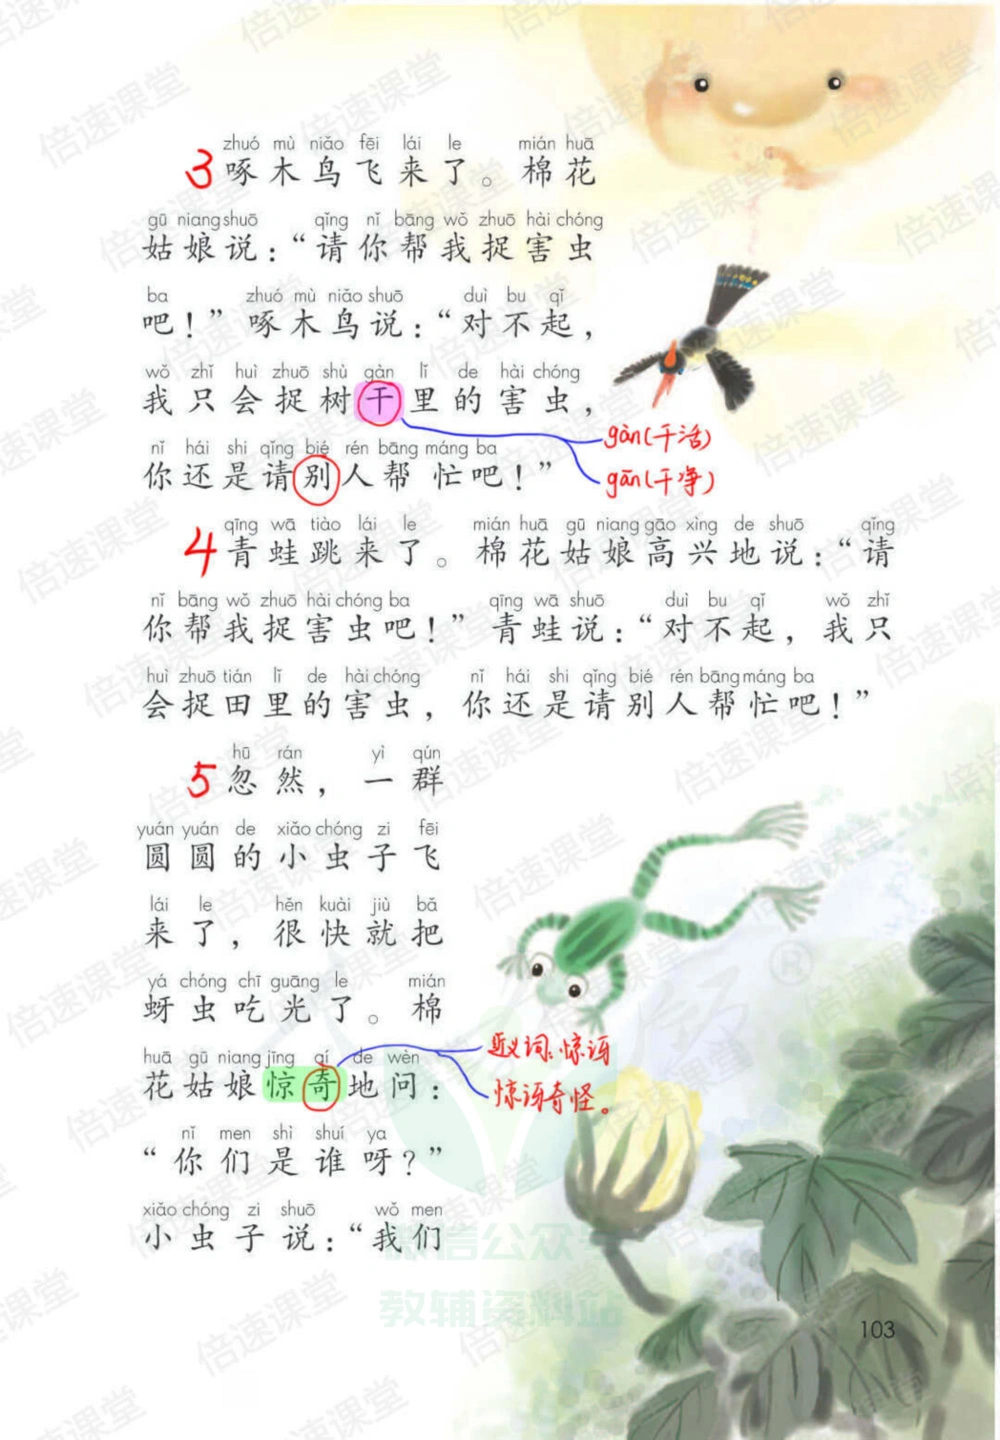 zhuó mù niǎo fēi lái le mián huā
3 啄木鸟飞来了。棉花
gū niang shuō qǐng nǐ bāng wǒ zhuō hài chóng
姑娘说：“请你帮我捉害虫
ba zhuó mù niǎo shuō duì bu qǐ
吧！”啄木鸟说：“对不起，
wǒ zhǐ huì zhuō shù gàn lǐ de hài chóng
我只会捉树干里的害虫，
gàn(干活)
nǐ hái shi qǐng bié rén bāng máng ba
你还是请别人帮忙吧！”
gān(干净)
qīng wā tiào lái le mián huā gū niang gāo xìng de shuō qǐng
4 青蛙跳来了。棉花姑娘高兴地说：“请
nǐ bāng wǒ zhuō hài chóng ba qīng wā shuō duì bu qǐ wǒ zhǐ
你帮我捉害虫吧！”青蛙说：“对不起，我只
huì zhuō tián lǐ de hài chóng nǐ hái shi qǐng bié rén bāng máng ba
会捉田里的害虫，你还是请别人帮忙吧！”
hū rán yì qún
5 忽然，一群
yuán yuán de xiǎo chóng zi fēi
圆圆的小虫子飞
lái le hěn kuài jiù bǎ
来了，很快就把
yá chóng chī guāng le mián
蚜虫吃光了。棉
huā gū niang jīng qí de wèn
花姑娘惊奇地问：
近义词：惊讶
惊讶奇怪。
nǐ men shì shuí ya
“你们是谁呀？”
xiǎo chóng zi shuō wǒ men
小虫子说：“我们
微信公众号
教辅资料站
103
倍速课堂